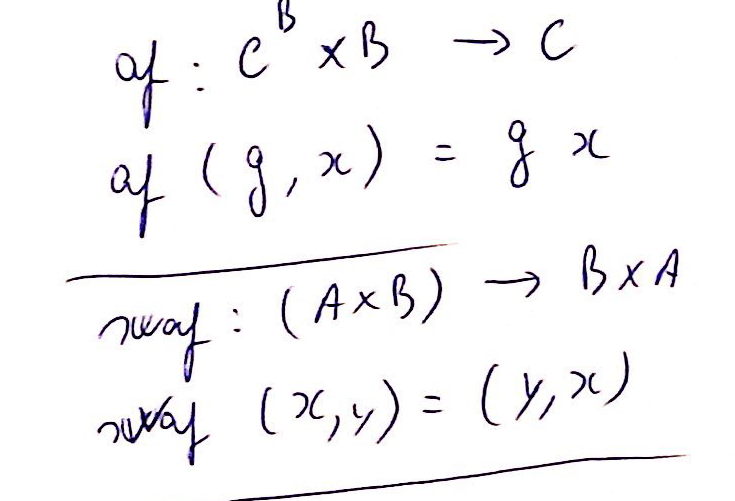 ap : C^B × B → C
ap (g, x) = g x
swap : (A×B) → B×A
swap (x, y) = (y, x)